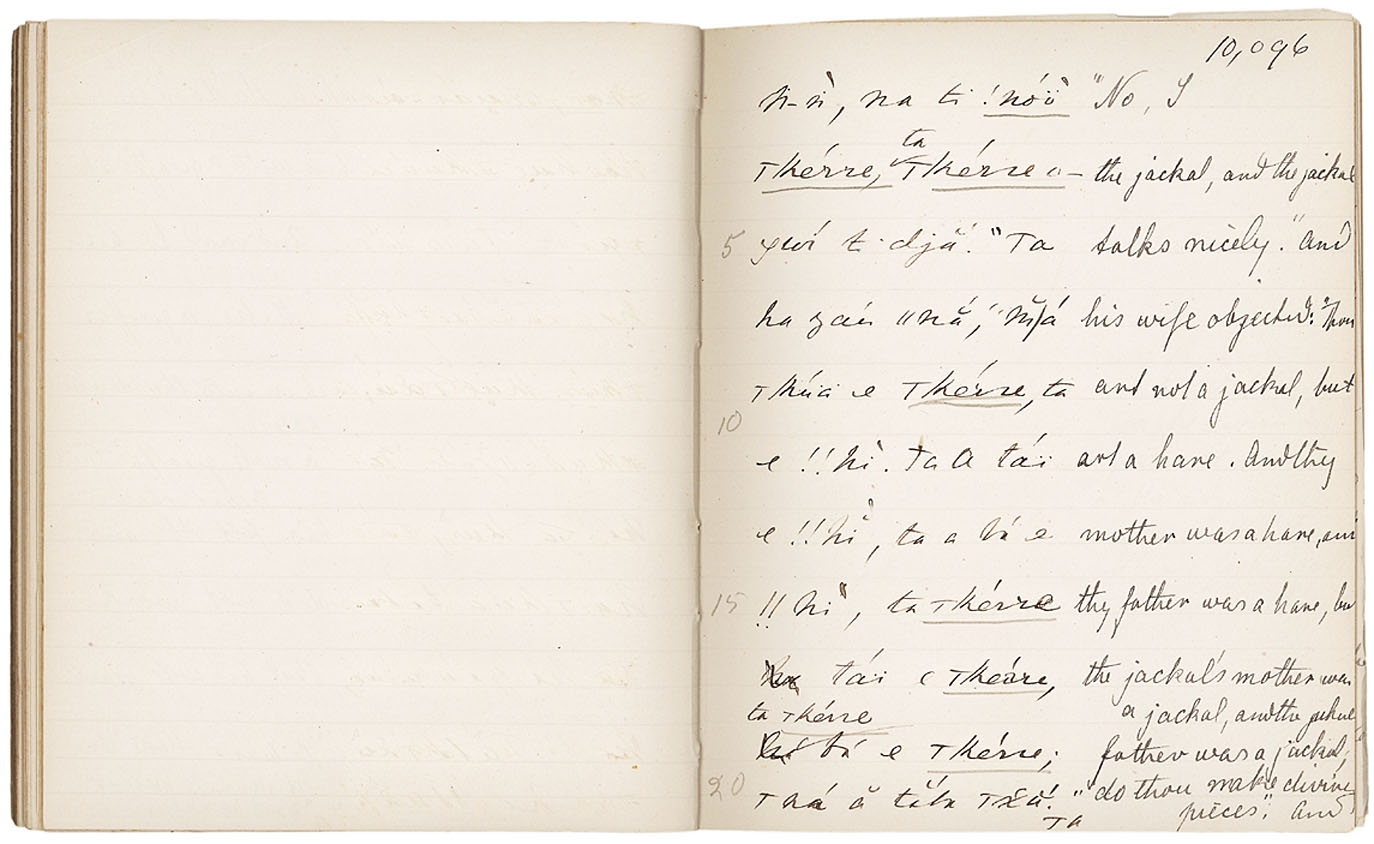 10,096
n-ǹ, na ti !nóï "No, I
ta
Tkérre, Tkérre a- the jackal, and the jackal
5 t djă." Ta talks nicely." And
ha gáu "nă," his wife objected: "Thou
e Tkérre, ta art not a jackal, but
10
e !!hi. Ta a tái art a hare. And thy
e !!hi, ta a bá e mother was a hare, and
15 !!hi, ta Tkérre thy father was a hare, but
tái e Tkérre, the jackal's mother was
ta Tkérre a jackal, and the jackal
bá e Tkérre; father was a jackal;
20 "do thou make divining
Ta pieces." And